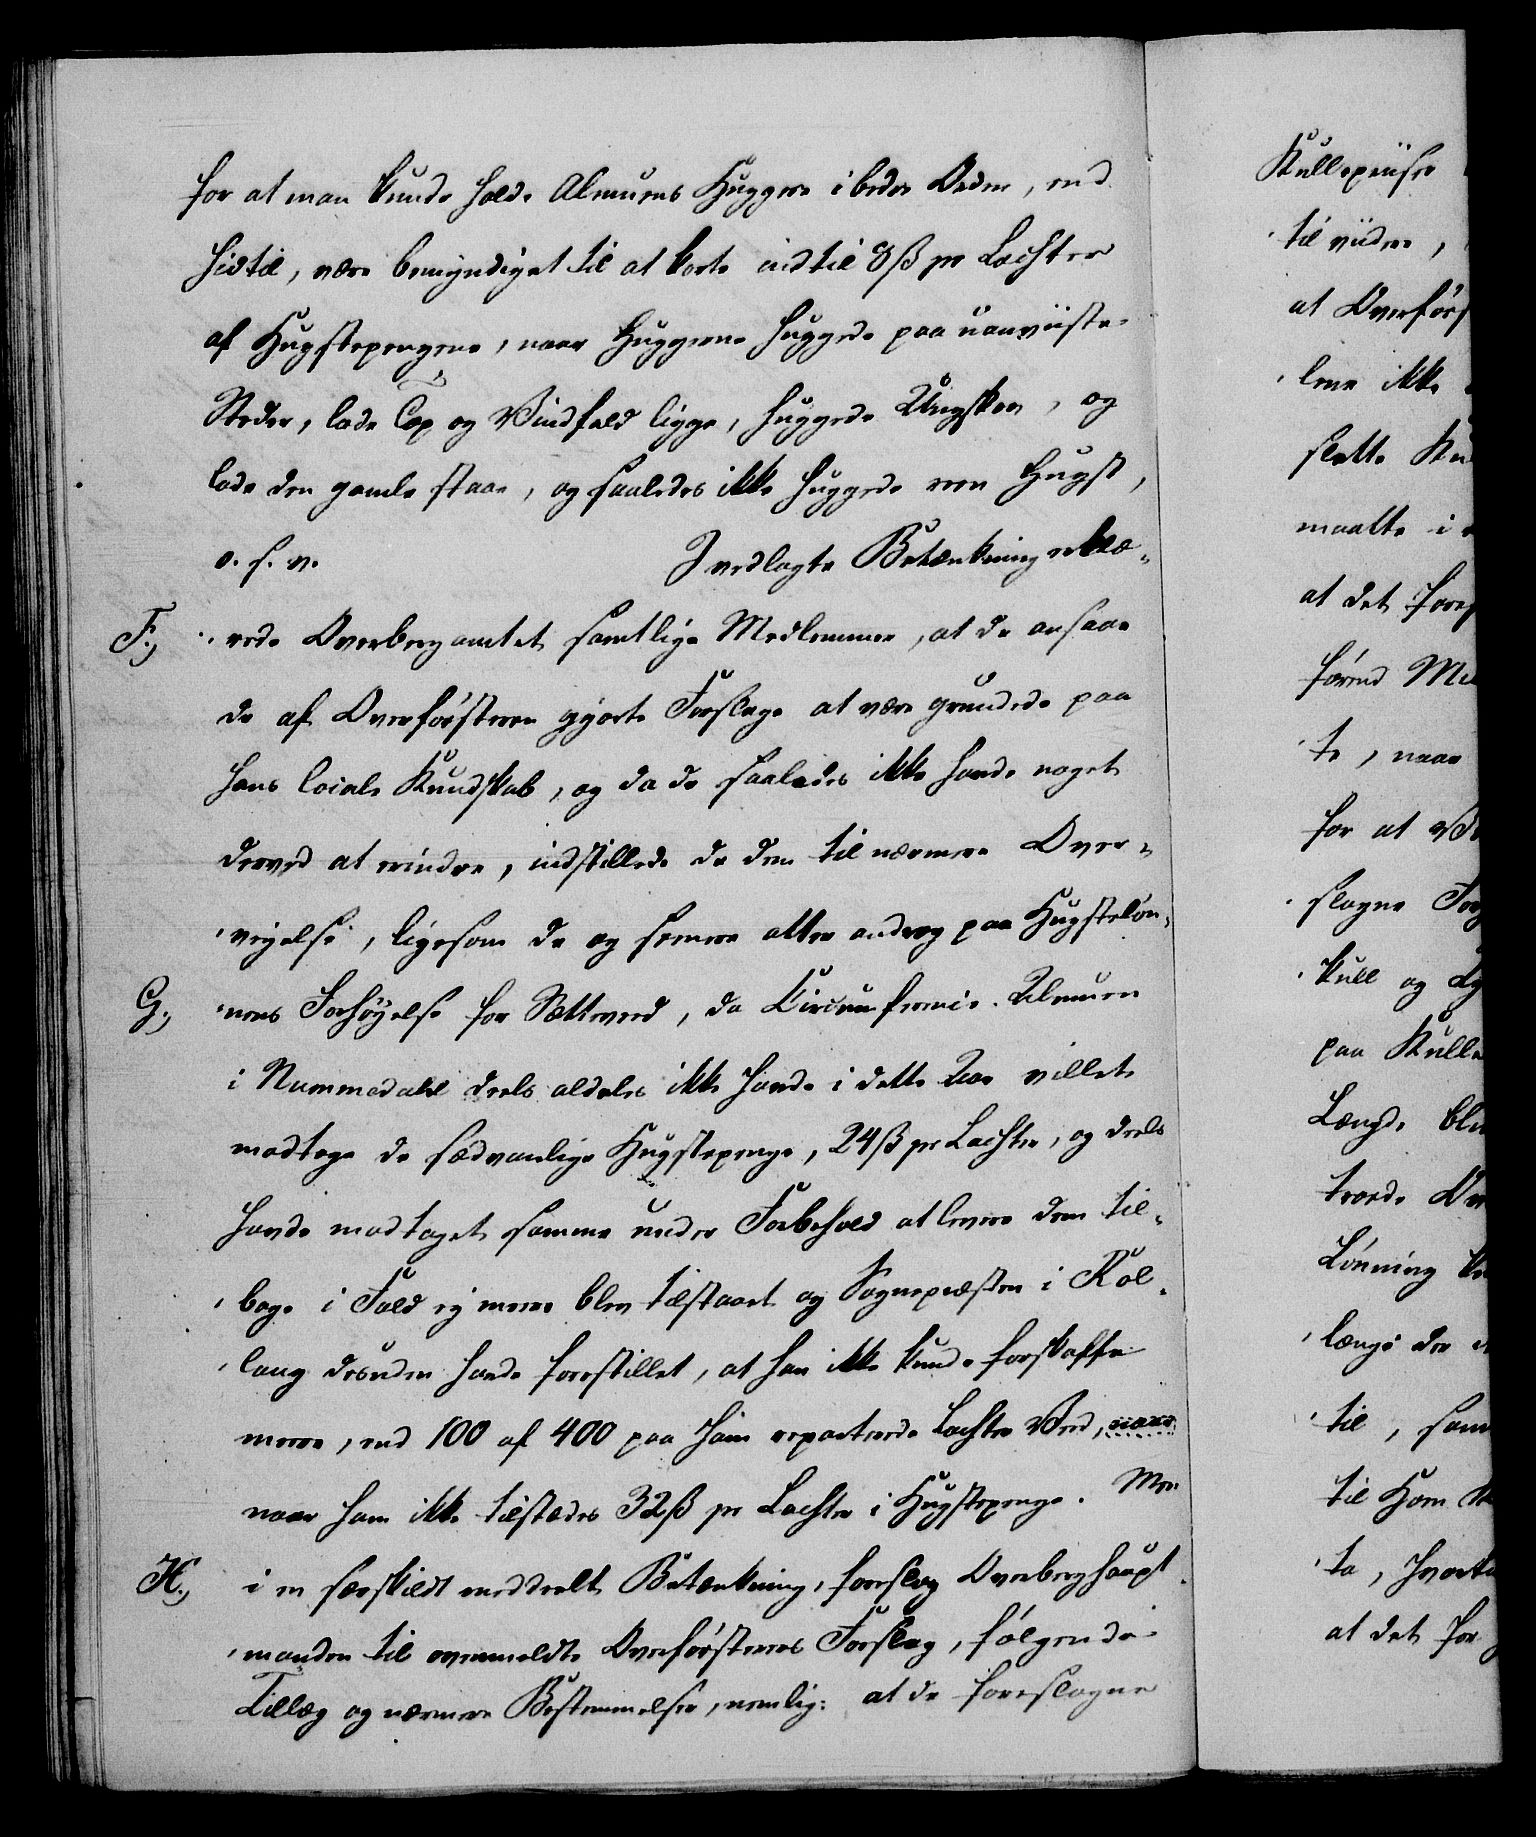 for at man kunde holde Almuens Huggere i bedre Orden, end
hidtil, være bemyndiget til at korte indtil 8 ß pr Lachter
af Hugstepengene, naar Huggerne huggede paa uanviiste
Steder, lode Top og Vindfald ligge, huggede Ungskov, og
lode den gamle staae, og saaledes ikke huggede reen Hugst,
o. s. v. I vedlagte Betænkning erklæ-
F., rede Overbergamtets samtlige Medlemmer, at de ansaae
de af Overførsteren gjorte Forslage at være grundede paa
hans locale Kundskab, og da de saaledes ikke havde noget
derved at erindre, indstillede de dem til nærmere Over-
veyelse, ligesom de og fremere atter androg paa Hugsteløn-
G., nens Forhøyelse for Sætteveed, da Circumferenz-Almuen
i Nummedahl deels aldeles ikke havde i dette Aar villet
modtage de sædvanlige Hugstepenge, 24 ß pr Lachter, og deels
havde modtaget samme under Forbehold at levere dem til-
bage i Fald ej mere blev tilstaaet og Sognepræsten i Rol-
laug desuden havde forestillet, at han ikke kunde forskaffe
mere, end 100 af 400 paa ham reparterede Lachter Veed, naar
naar ham ikke tilstædes 32 ß pr Lachter i Hugstepenge. Men
H., i en særskildt meddeelt Betænkning, foreslog Overberghaupt-
manden til ovenmeldte Overførsterens Forslag, følgende
Tillæg og nærmere Bestemmelser, nemlig: at de foreslagne
Kullepriser
til viidere,
at Overførs
lene ikke
slette Ku
maatte i
at det fores
førend Me
te, naar
for at Ve
slagne For
Kull og
paa Kulle
Længde ble
troede Ov
Lønning
længe der
til, som
til Ham
te, hvorti
at det for